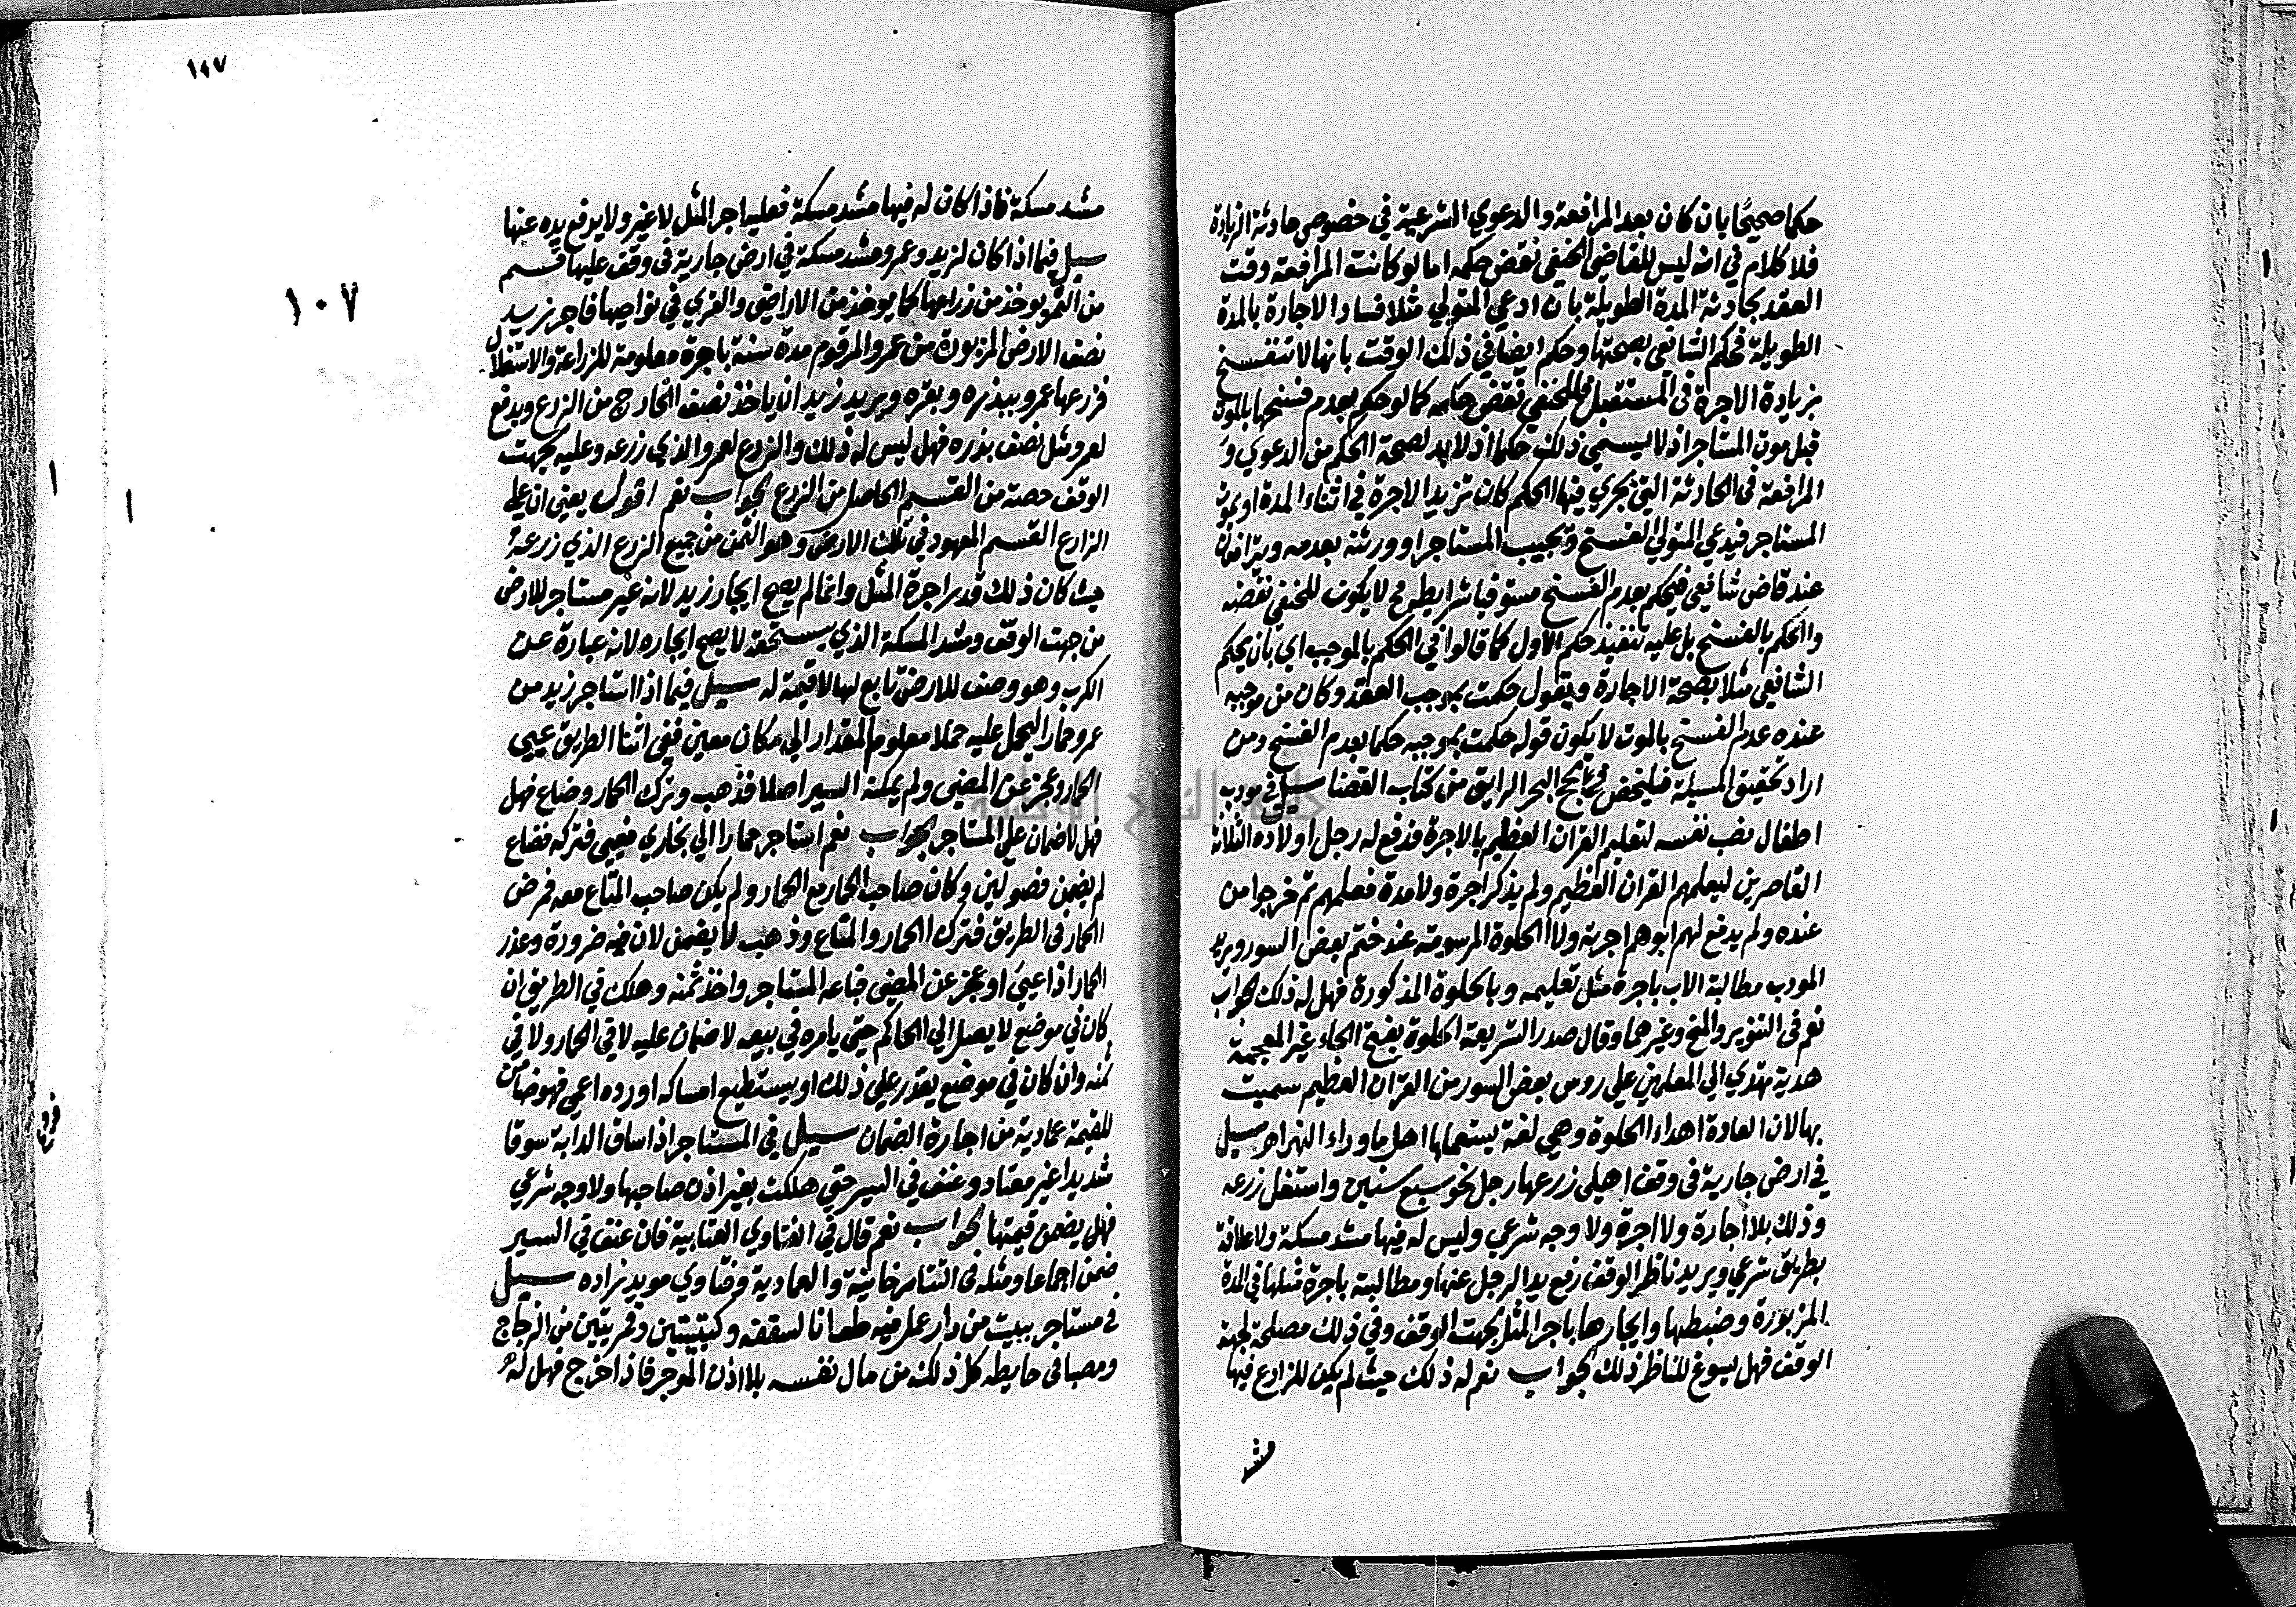 حكما صحيحا بان كان بعد المرافعة والدعوي الشرعية في خصوص حادثة الزيادة
فلا كلام في انه ليس للقاضي الحنفي نقض حكمه اما لو كانت المرافعة وقت
العقد بحادثة المدة الطويلة بان ادعي المتولي مثلا فساد الاجارة بالمدة
الطويلة فحكم الشافعي بصحتها وحكم ايضا في ذلك الوقت بانها لا تنفسخ
بزيادة الاجرة في المستقبل فللحنفي نقض حكمه كما لو حكم بعدم فسخها بالموت
قبل موت المستاجر اذ لا يسمي ذلك حكما اذ لا بد لصحة الحكم من الدعوي و
المرافعة في الحادثة التي يجري فيها الحكم كان تزيد الاجرة في اثناء المدة او يموت
المستاجر فيدعي المتولي الفسخ ويجيب المستاجر او ورثته بعدمه ويترافعان
عند قاض شافعي فيحكم بعدم الفسخ مستوفيا شرايطه ح لا يكون للحنفي نقضه
والحكم بالفسخ بل عليه تنفيذ حكم الاول كما قالوا في الحكم بالموجب اي بان يحكم
الشافعي مثلا بصحة الاجارة ويقول حكمت بموجب العقد وكان من موجبه
عنده عدم الفسخ بالموت لا يكون قوله حكمت بموجبه حكما بعدم الفسخ ومن
اراد تحقيق المسيلة فليخض في لجج البحر الرايق من كتاب القضا سيل في مودب
اطفال نصب نفسه لتعليم القران العظيم بالاجرة فدفع له رجل اولاده الثلاثة
القاصرين ليعلمهم القران العظيم ولم يذكر اجرة ولا مدة فعلمهم ثم خرجوا من
عنده ولم يدفع لهم ابوهم اجرته ولا الحلوة المرسومة عند ختم بعض السور ويريد
المودب مطالبة الاب باجرة مثل تعليمه وبالحلوة المذكورة فهل له ذلك الجواب
نعم في التنوير والمنح وغيرهما وقال صدر الشريعة الحلوة بفتح الحاء غير المعجمة
هدية تهدي الي المعلمين علي روس بعض السور من القران العظيم سميت
بها لان العادة اهداء الحلوة وهي لغة يستعملها اهل ما وراء النهر اهـ سيل
في ارض جارية في وقف اهلي زرعها رجل نحو سبع سنين واستغل زرعه
وذلك بلا اجارة ولا اجرة ولا وجه شرعي وليس له فيها مشد مسكة ولا علاقة
بطريق شرعي ويريد ناظر الوقف رفع يد الرجل عنها ومطالبته باجرة مثلها في المدة
المزبورة وضبطها وايجارها باجر المثل لجهت الوقف وفي ذلك مصلحة لجهة
الوقف فهل يسوغ للناظر ذلك الجواب نعم له ذلك حيث لم يكن للزارع فيها
مشد
١٠٧
١٠٧
مشد مسكة فاذا كان له فيها مشد مسكة فعليه اجر المثل لا غير ولا يرفع يده عنها
سيل فيما اذا كان لزيد وعمرو مشد مسكة في ارض جارية في وقف عليها قسم
من الثمر يوخذ من زراعها كما يوخذ من الاراضي والقري في نواحيها فاجر زيد
نصف الارض المزبورة من عمرو المرقوم مدة سنة باجرة معلومة للزراعة والاستغلال
فزرعها عمرو ببذره وبقره ويريد زيد ان ياخذ نصف الخارج من الزرع ويدفع
لعمرو مثل نصف بذره فهل ليس له ذلك والزرع لعمرو الذي زرعه وعليه لجهت
الوقف حصة من القسم الحاصل من الزرع الجواب نعم اقول يعني ان علي
الزارع القسم المعهود في تلك الارض وهو الثمن من جميع الزرع الذي زرعه
حيث كان ذلك قدر اجرة المثل وانما لم يصح ايجار زيد لانه غير مستاجر للارض
من جهت الوقف ومشد المسكة الذي يستحقه لا يصح ايجاره لانه عبارة عن
الكرب وهو وصف للارض تابع لها لا قيمة له سيل فيما اذا استاجر زيد من
عمرو حمارا ليحمل عليه حملا معلوم المقدار الي مكان معين ففي اثنا الطريق عيي
الحمار وعجز عن المضي ولم يمكنه السير اصلا فذهب وترك الحمار وضاع فهل
فهل لا ضمان علي المستاجر الجواب نعم استاجر حمارا الي بخاري فعيي فتركه فضاع
لم يضمن فصولين وكان صاحب الحمار مع الحمار ولم يكن صاحب المتاع معه فمرض
الحمار في الطريق فترك الحمار والمتاع وذهب لا يضمن لان فيه ضرورة وعذر
الحمار اذا عيي او عجز عن المضي فباعه المستاجر واخذ ثمنه وهلك في الطريق ان
كان في موضع لا يصل الي الحاكم حتي يامره في بيعه لا ضمان عليه لا في الحمار ولا في
ثمنه وان كان في موضع يقدر علي ذلك او يستطيع امساكه او رده اعمي فهو ضامن
للقيمة عمادية من اجارة الضمان سيل في المستاجر اذا ساق الدابة سوقا
شديدا غير معتاد وعنف في السير حتي هلكت بغير اذن صاحبها ولا وجه شرعي
فهل يضمن قيمتها الجواب نعم قال في الفتاوي العتابية فان عنف في السير
ضمن اجماعا ومثله في التتارخانية والعمادية وفتاوي مويد زاده سيل
في مستاجر بيت من دار عمل فيه طوانا لسقفه وكتيبتين وقمريتين من الزجاج
ومصبا في حايطه كل ذلك من مال نفسه بلا اذن الموجر فاذا خرج فهل له